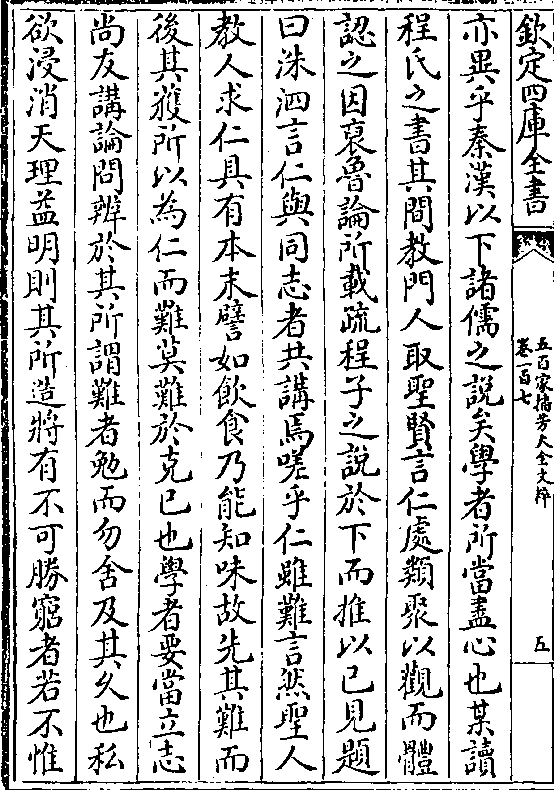 欽定四庫全書
五百家播芳大全文粹
卷一百七
五
亦異乎秦漢以下諸儒之說矣學者所當盡心也某讀
程氏之書其間教門人取聖賢言仁處類聚以觀而體
認之因裒魯論所載疏程子之說於下而推以已見題
曰洙泗言仁與同志者共講焉嗟乎仁雖難言然聖人
教人求仁具有本末譬如飲食乃能知味故先其難而
後其獲所以為仁而難莫難於克已也學者要當立志
尚友講論問辨於其所謂難者勉而勿舍及其久也私
欲浸消天理益明則其所造將有不可勝窮者若不惟